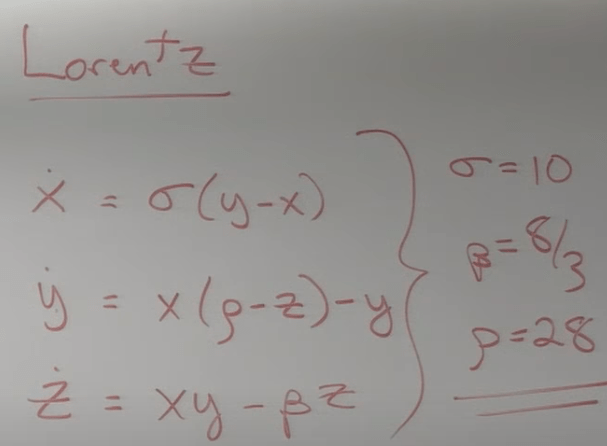 Lorentz
ẋ = σ(y-x)
ẏ = x(ρ-z)-y
ż = xy - βz
σ=10
β=8/3
ρ=28